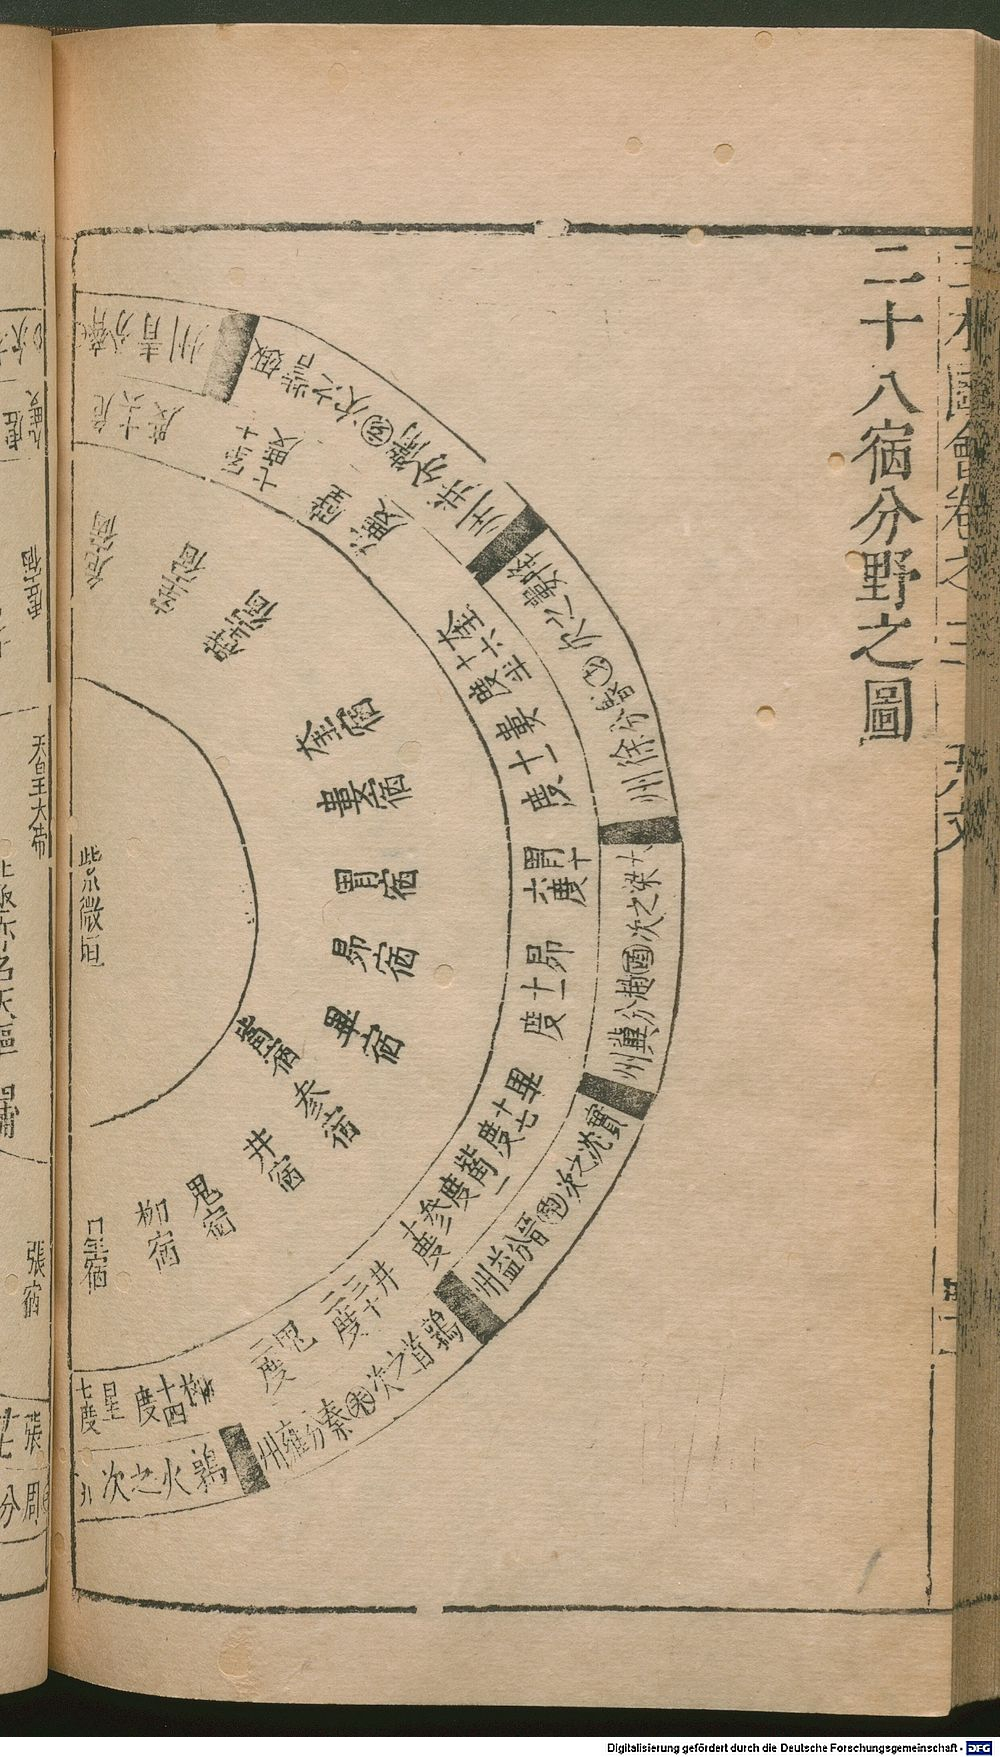 二十八宿分野之圖
圖會卷之三
天文
紫微垣
危宿
室宿
壁宿
奎宿
婁宿
胃宿
昴宿
畢宿
觜宿
參宿
井宿
鬼宿
柳宿
星宿
室十
七度
壁
度
奎十六
半度
婁
十一
度
胃十
六度
昴
十一
度
畢
十七
度
觜一
度
參十
度
井
三十
三度
鬼
二度
柳
十四
度
星
七度
分青州
娵訾之次亥衛分并州
降婁之次戌魯分徐州
大梁之次酉趙分冀州
實沈之次申晉分益州
鶉首之次未秦分雍州
鶉火之次
虛宿
天皇大帝
北極亦名天樞
張宿
張
周分
Digitalisierung gefördert durch die Deutsche Forschungsgemeinschaft - DFG